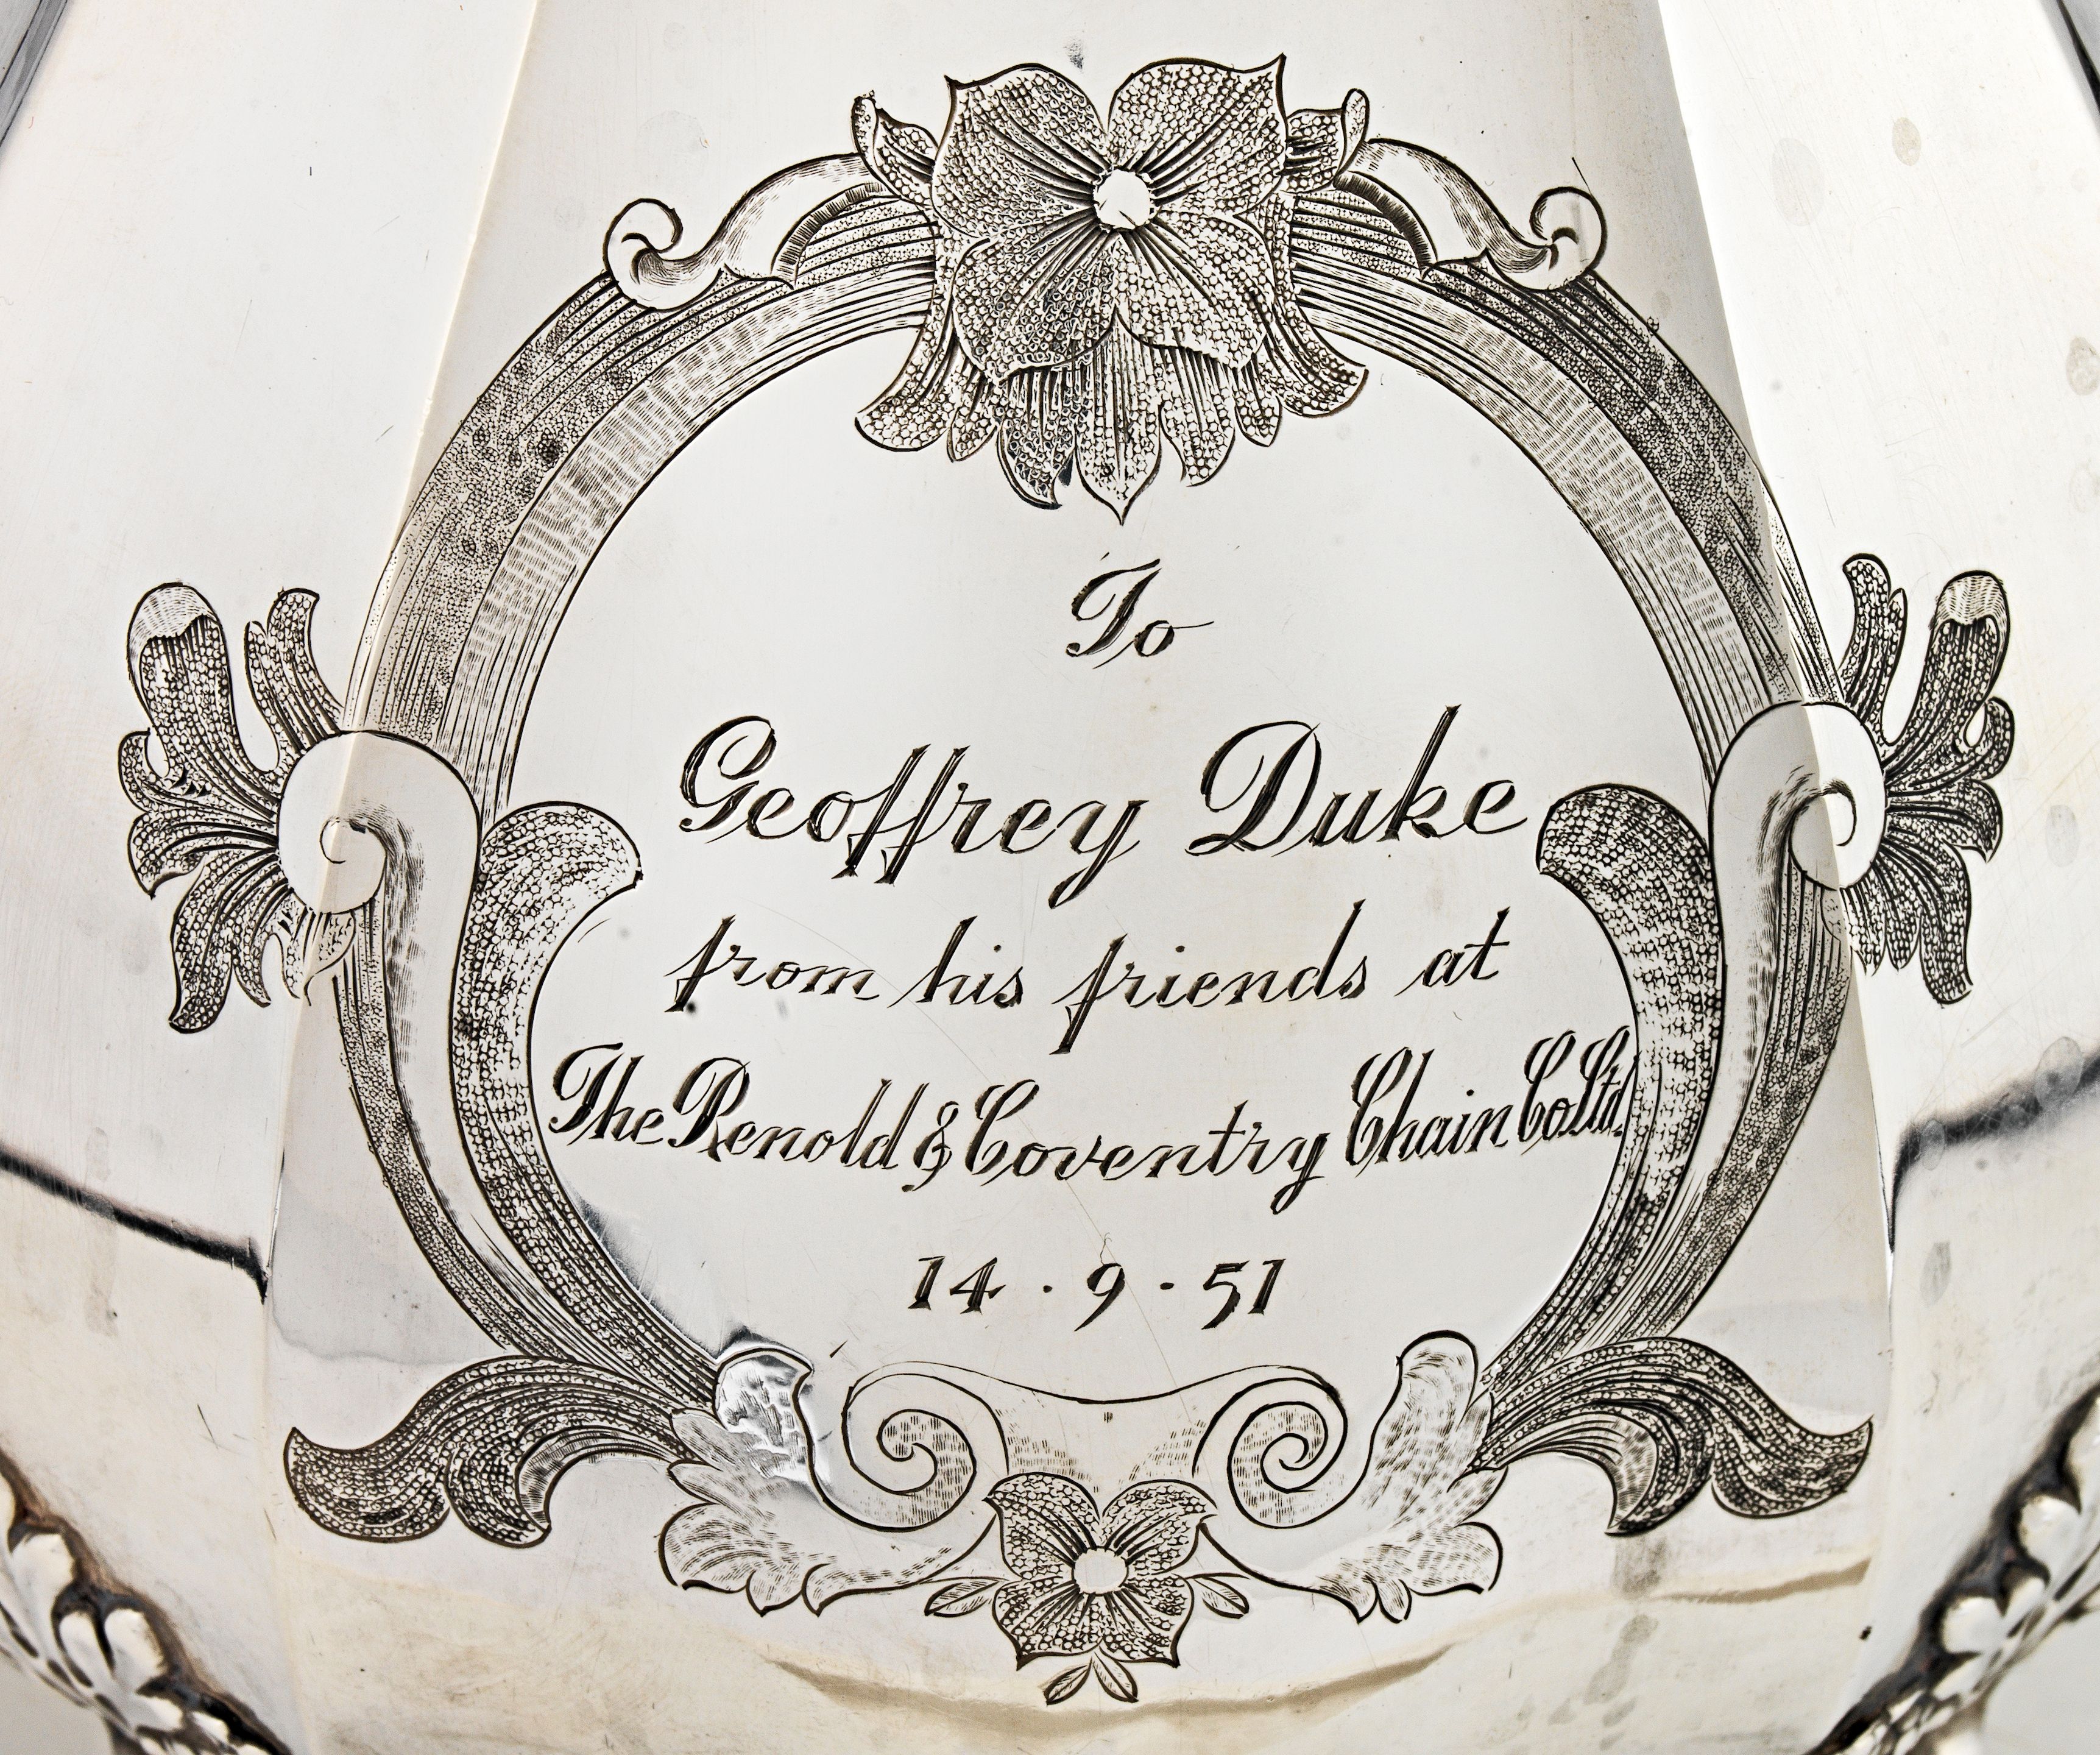 To
Geoffrey Duke
from his friends at
The Renold & Coventry Chain Co Ltd.
14 · 9 · 51